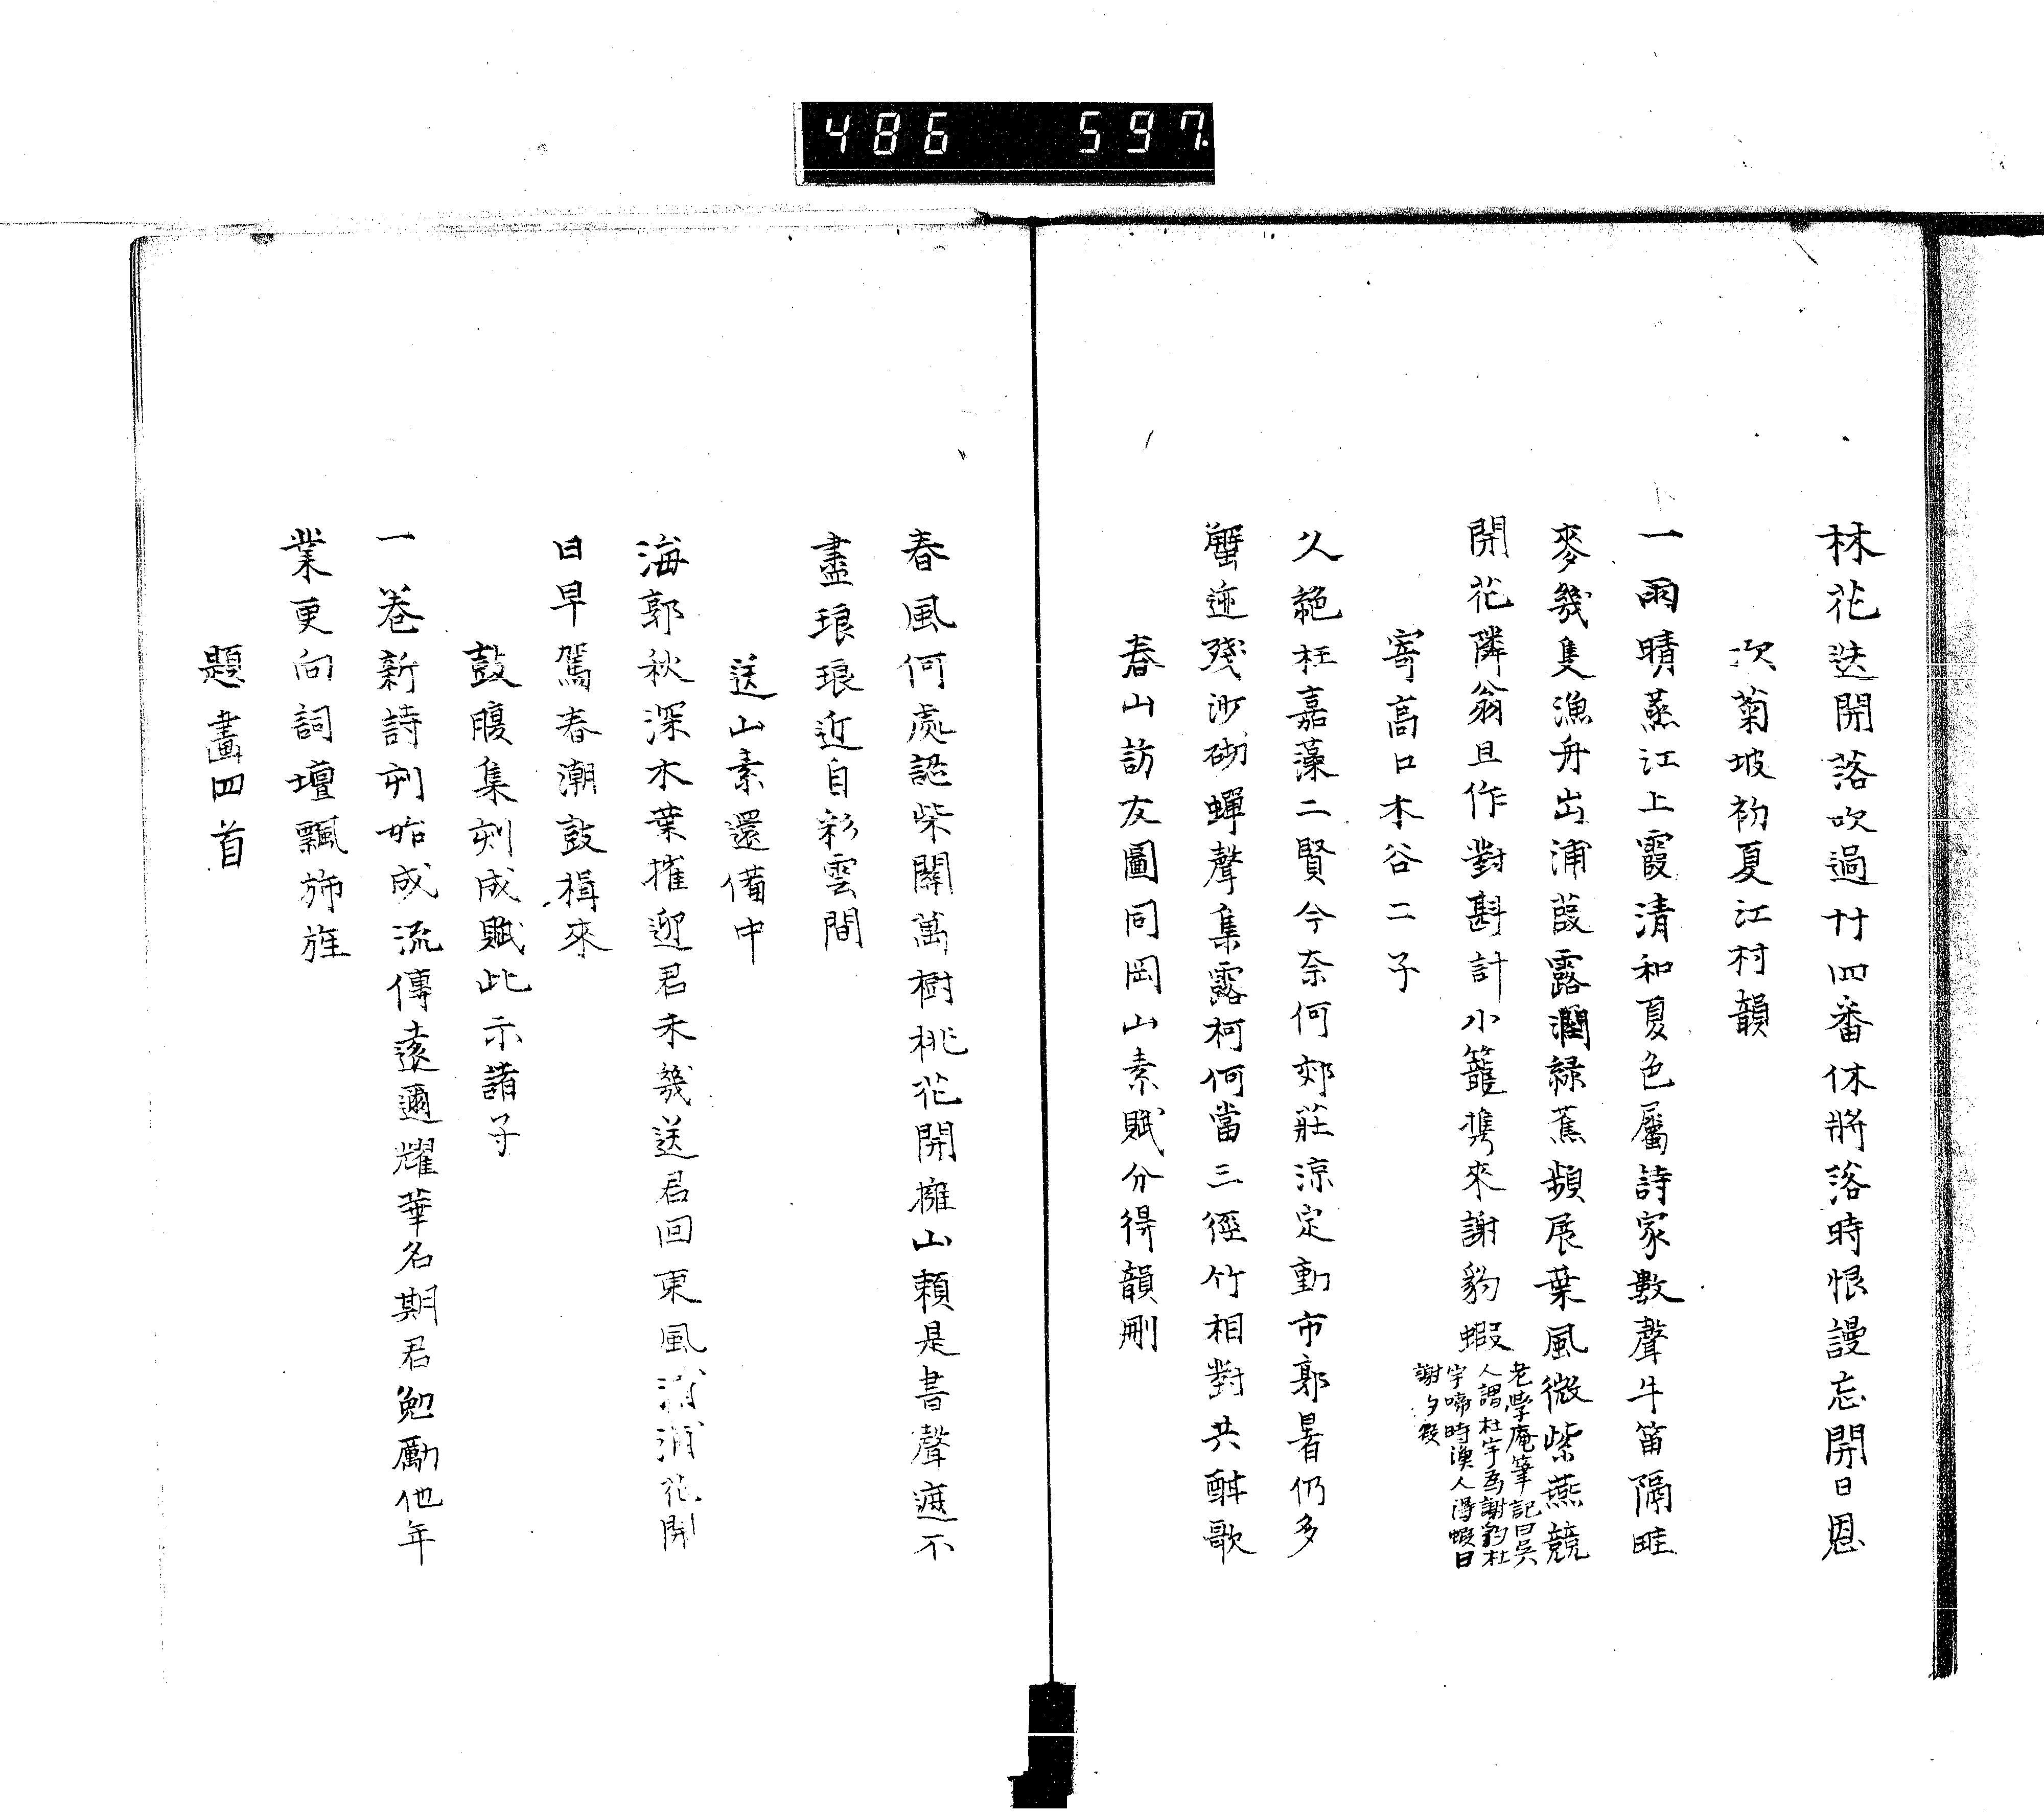 486 597
林花迭開落吹過廿四番休將落時恨謾忘開日恩
次菊坡初夏江村韻
一雨晴蒸江上霞清和夏色屬詩家數聲牛笛隔畦
麥幾隻漁舟出浦葭露濶緑蕉頻展葉風微紫燕競
開花隣翁且作對斟計小籠携來謝豹蝦
老學庵筆記曰吳
人謂杜宇為謝豹杜
宇啼時漁人得蝦曰
謝夕
寄高口木谷二子
久絶枉嘉藻二賢今奈何郊莊涼定動市郭暑仍多
蟹迹殘沙砌蟬聲集露柯何當三徑竹相對共酣歌
春山訪友圖同岡山素賦分得韻刪
春風何處認柴關萬樹桃花開擁山賴是書聲遮不
盡琅琅近自彩雲間
送山素還備中
海郭秋深木葉摧迎君未幾送君回東風浦花開
日早駕春潮鼓楫來
鼓腹集刻成賦此示諸子
一卷新詩刻始成流傳遠邇耀華名期君勉勵他年
業更向詞壇飄旆旌
題畫四首